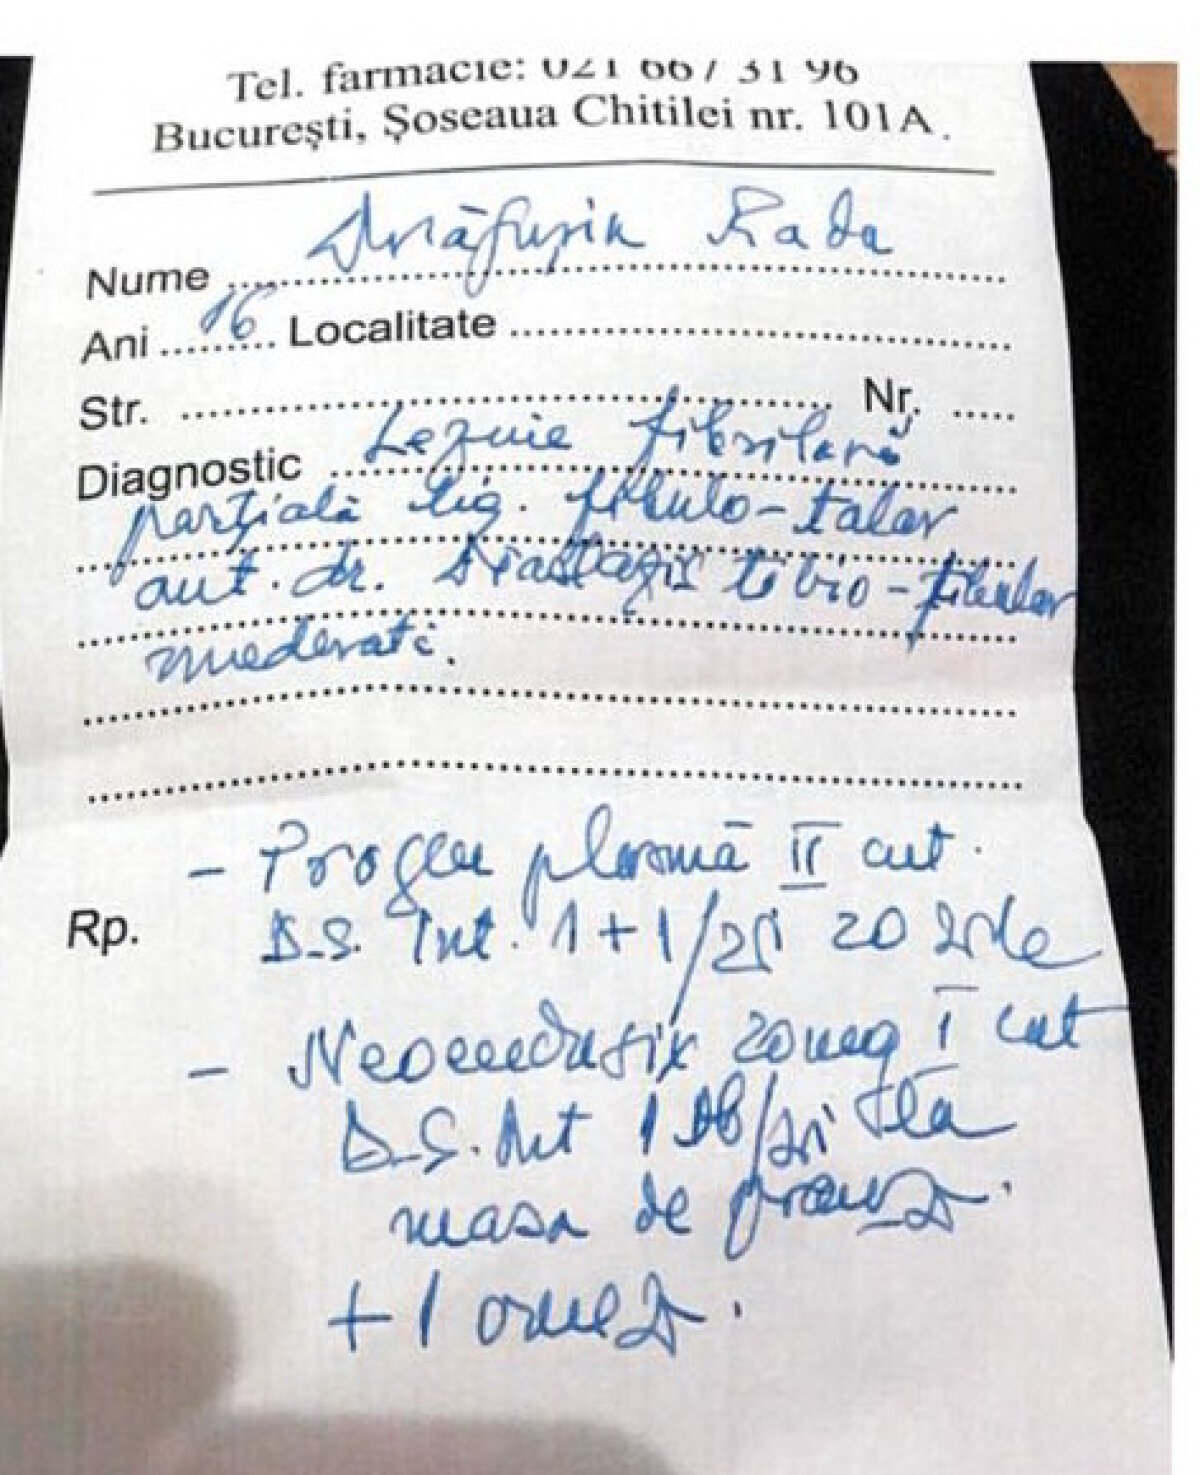 Tel. farmacie: 021 667 31 96
București, Șoseaua Chitilei nr. 101A.
Nume Rada
Ani 16 Localitate
Str. Nr.
Diagnostic Lezuie fibrilară
parțială lig. fibulo-talar
ant. dr. Diastazis tibio-fibular
moderată.
- plasmă II cut.
Rp. D.S. Int. 1+1/zi 20 zile
- 20 mg I cut
D.S. Int 1 /zi la
masa de pranz.
+ 1